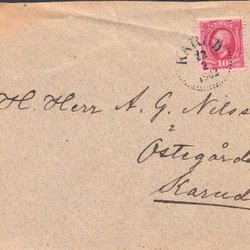 KARUD
12
2
1902
10
H. Herr A. G. Nilss
Östegård
Karud